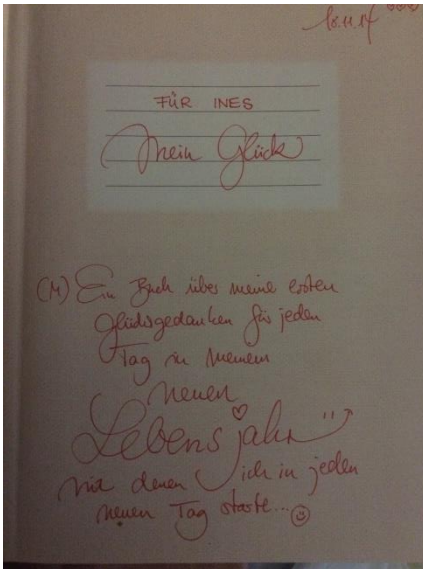 18.11.17
FÜR INES
Mein Glück
(M)Ein Buch über meine ersten
Glücksgedanken für jeden
Tag in meinem
neuen
Lebensjahr
mit denen ich in jeden
neuen Tag starte...